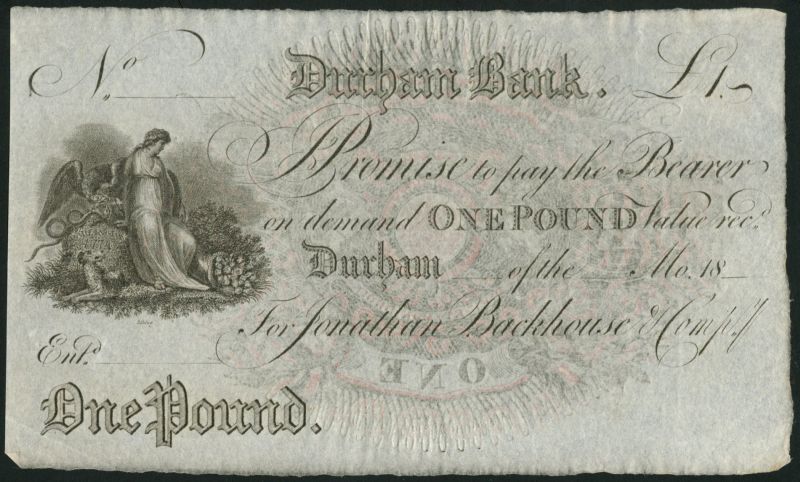 No
Durham Bank.
£1.-
I Promise to pay the Bearer
on demand ONE POUND Value recd.
Durham ___ of the ___ Mo. 18__
For Jonathan Backhouse & Compy.
Entd.
ONE
One Pound.